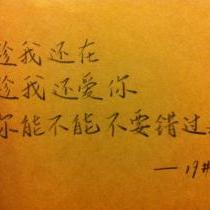 趁我还在
趁我还爱你
你能不能不要错过
— 19#